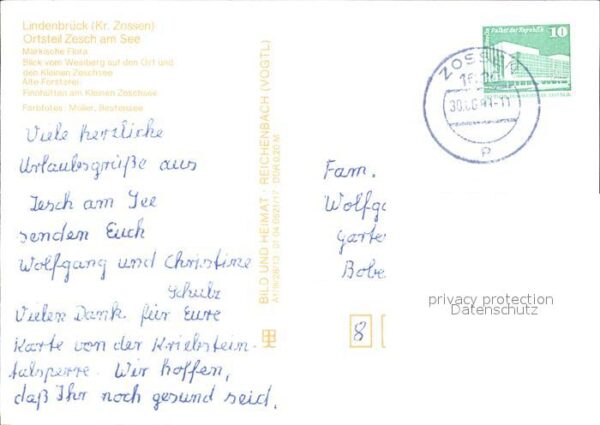 Lindenbrück (Kr. Zossen)
Ortsteil Zesch am See
Märkische Flora
Blick vom Weinberg auf den Ort und
den Kleinen Zeschsee
Alte Försterei
Finnhütten am Kleinen Zeschsee
Farbfotos: Müller, Bestensee
Viele herzliche
Urlaubsgrüße aus
Zesch am See
senden Euch
Wolfgang und Christine
Schulz
Vielen Dank für Eure
Karte von der Kriebstein-
talsperre. Wir hoffen,
daß Ihr noch gesund seid.
BILD UND HEIMAT · REICHENBACH (VOGTL)
Palast der Republik
10
ZOSSEN
Fam.
Wolfg
Garte
Bobe
8
privacy protection
Datenschutz